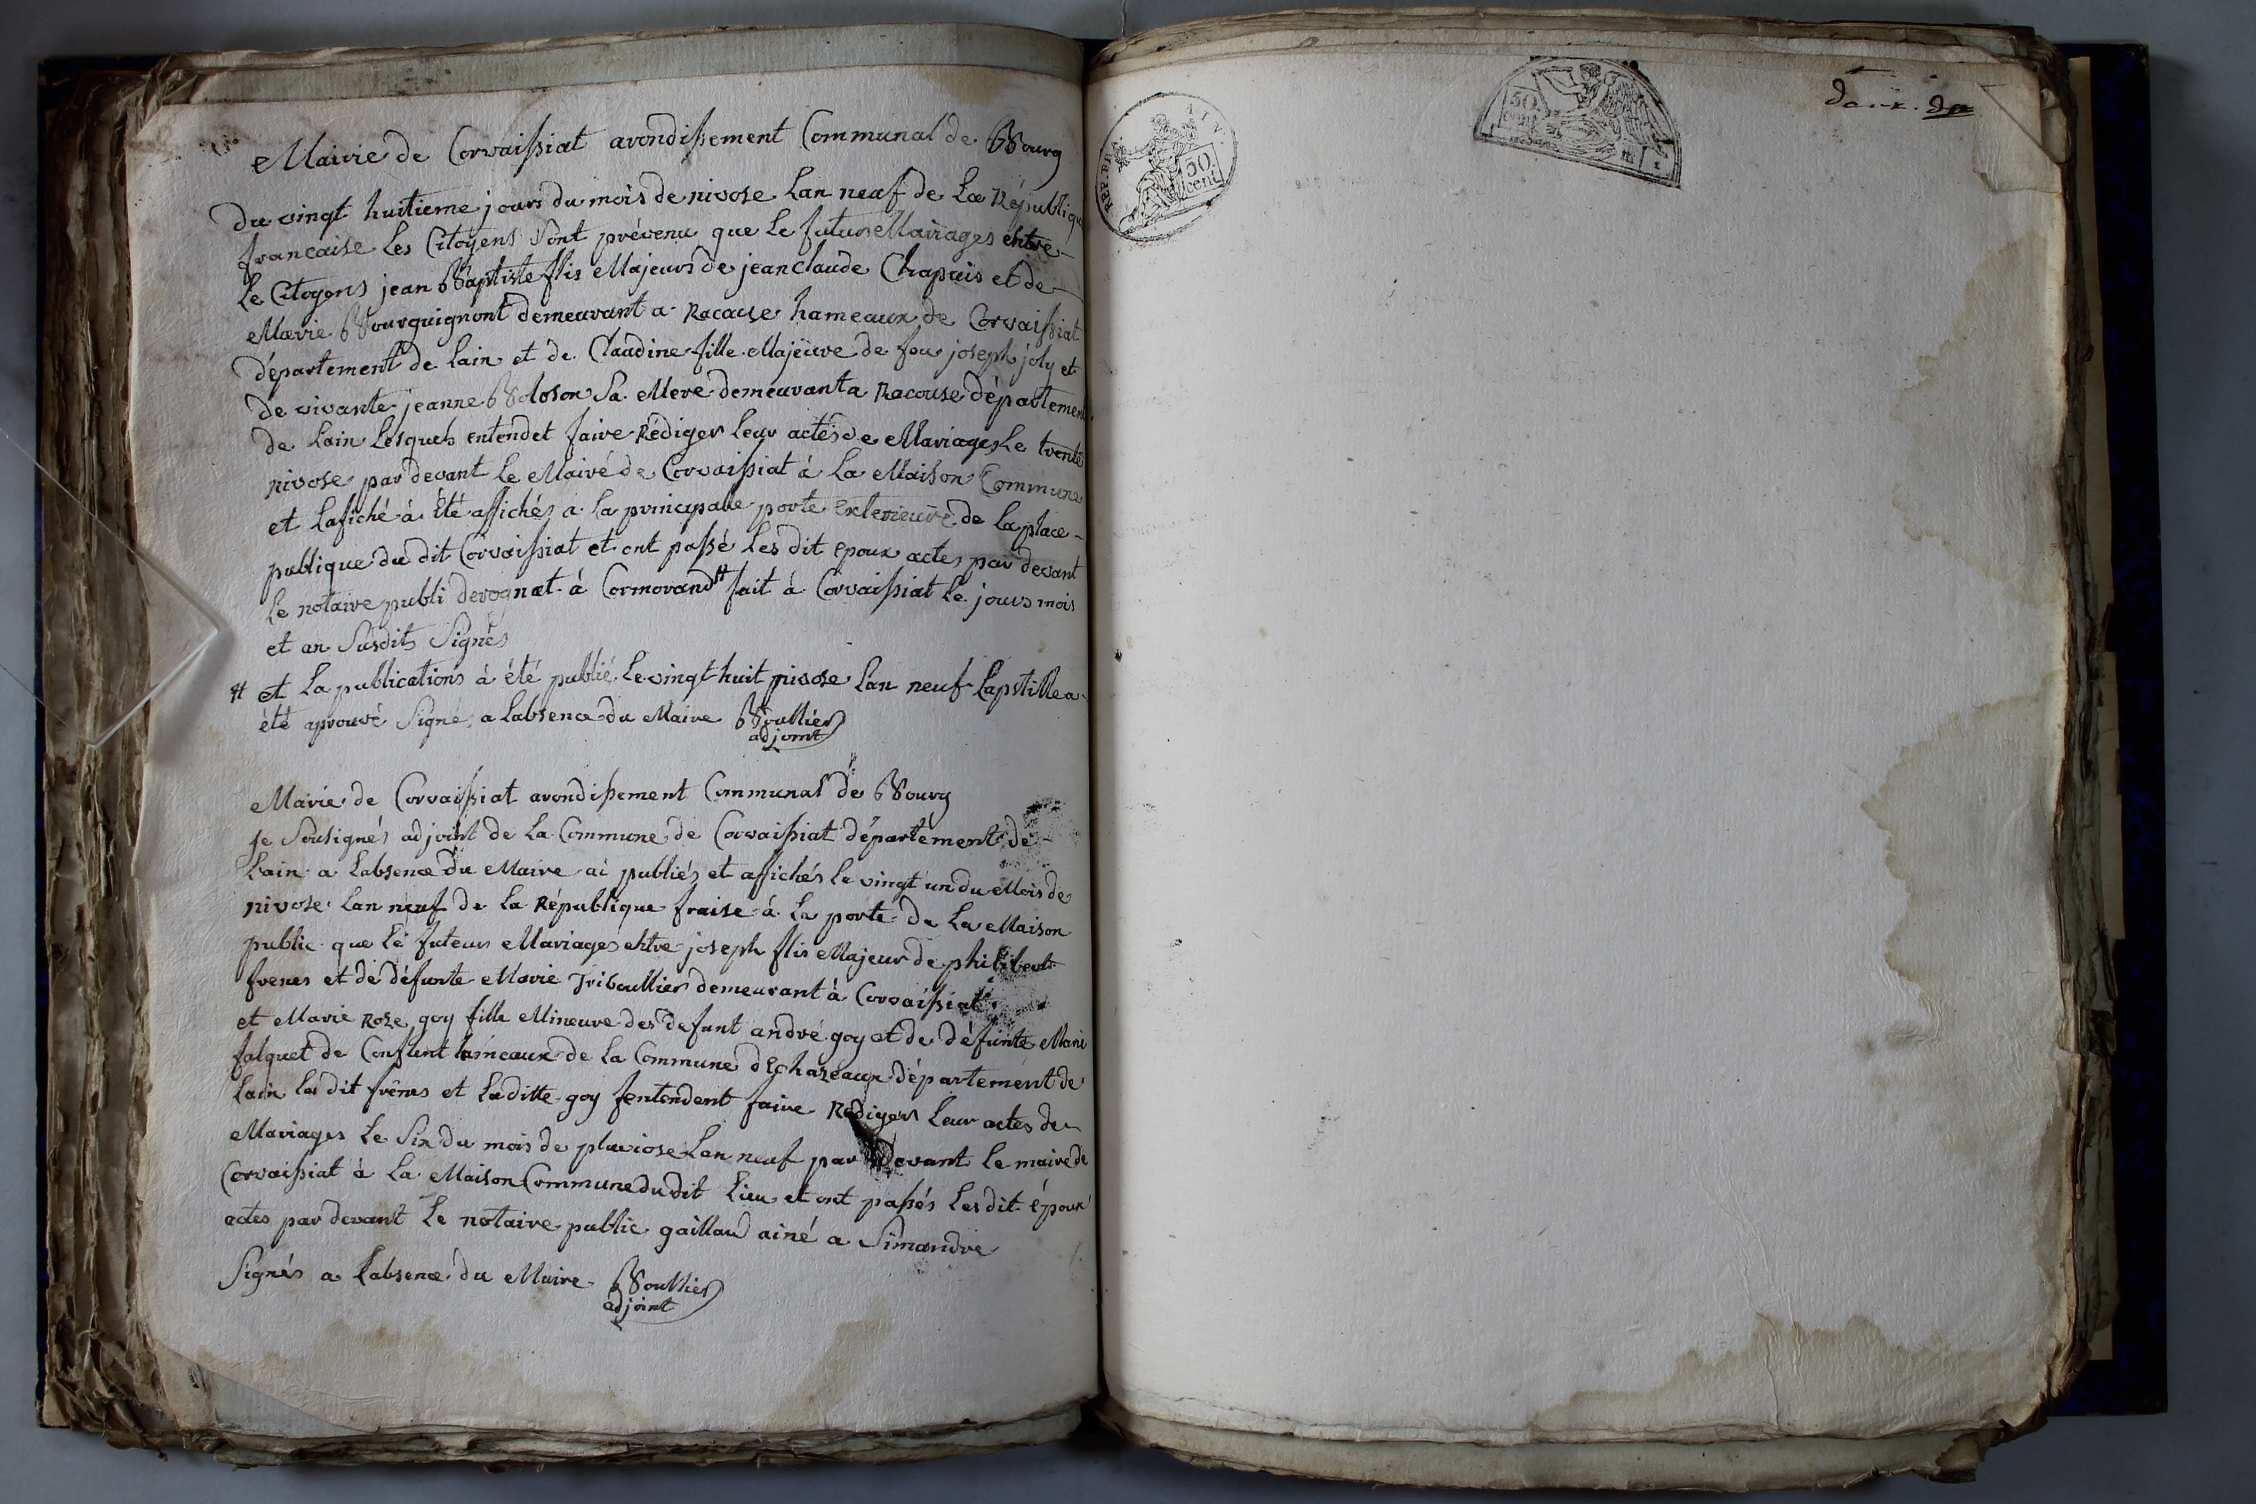 Mairie de Corvaissiat arondissement Communal de Bourg
du vingt huitieme jours du mois de nivose Lan neuf de La République
francaise Les Citoyens Sont prévenu que Le futurs Mairiages entre
Le Citoyens jean Baptiste flis Majeurs de jean claude Chapuis et de
Marie Bourguignont demeurant a Racouse hameaux de Corvaissiat
département de Lain et de Claudine fille Majeure de feu joseph joly et
de vivante jeanne Boloson Sa Mere demeurant a Racouse département
de Lain Lesquels entendet faire Rédiger Leur actes de Mariages Le trente
nivose par devant Le Mairé de Corvaissiat à La Maison Commune
et Lafiché à été affichés a La principalle porte exterieure de La place
publique du dit Corvaissiat et ont passé Les dit epoux actes par devant
Le notaire publi devognat à Cormorand # fait à Corvaissiat Le jours mois
et an Susdits Signés
# et La publications à été publié Le vingt huit nivose Lan neuf Lapstille a
été aprouvé Signé a Labsence du Maire Boullier
adjoint
Marie de Corvaissiat arondissement Communal de Bourg
je Sousignés adjoint de La Commune de Corvaissiat département de
Lain a Labsence du Maire ai publiés et affichés Le vingt un du Mois de
nivose Lan neuf de La République fraise à La porte de La Maison
public que Le futeurs Mariages entre joseph flis Majeur de philibert
frenes et de défunte Marie Triboullier demeurant à Corvaissiat
et Marie Roze goy fille Mineure des defunt andré goy et de défunte Marie
falquet de Conflent hameaux de La Commune dEchazeaux département de
Lain Les dit frênes et Laditte goy sentendent faire Rediger Leur actes de
Mariages Le Six du mois de pluviose Lan neuf par Devant Le maire de
Corvaissiat à La Maison Commune du dit Lieu et ont passés Les dit époux
actes par devant Le notaire public gaillard ainé a Simandre
Signés a Labsence du Maire Boullier
adjoint
REP. FRA.
50
cent
50
cent